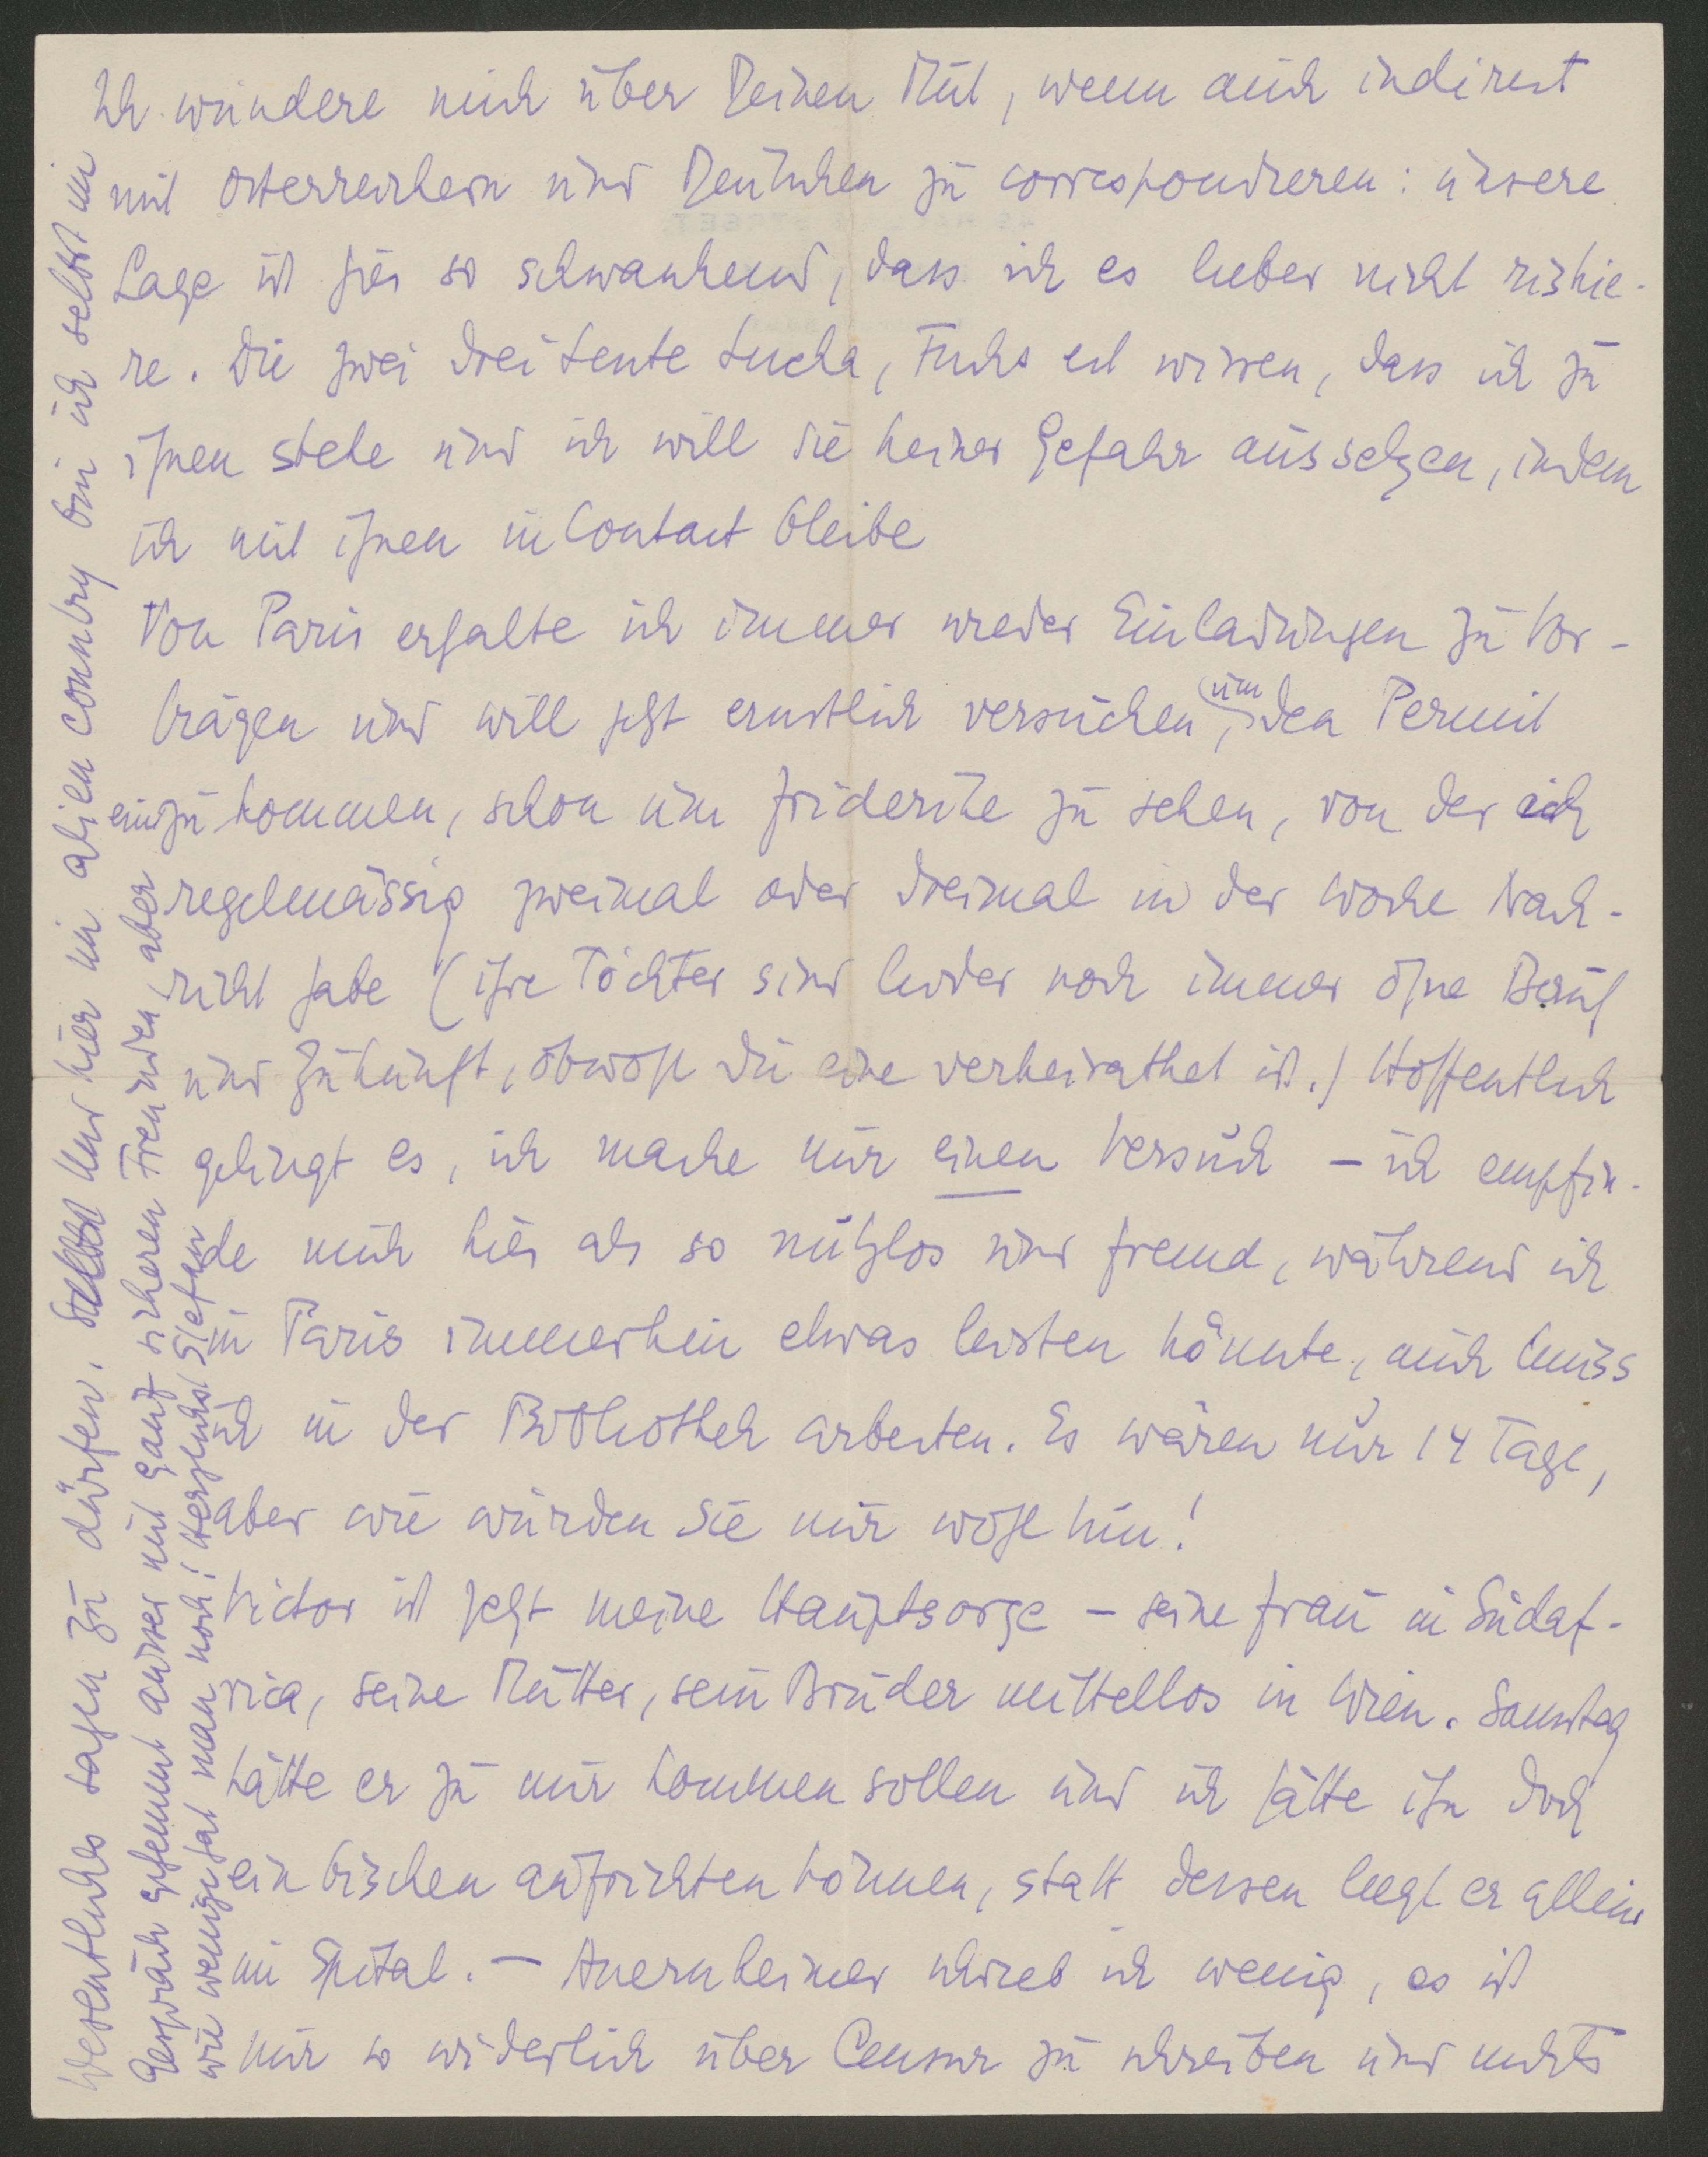 Ich wundere mich über Deinen Mut, wenn auch indirect
mit Österreichern und Deutschen zu correspondieren: unsere
Lage ist hier so schwankend, dass ich es lieber nicht riskie-
re. Die zwei drei Leute Lucka, Fuchs ect wissen, dass ich zu
ihnen stehe und ich will sie keiner Gefahr aussetzen, indem
ich mit ihnen in Contact bleibe
Von Paris erhalte ich immer wieder Einladungen zu Vor-
trägen und will jetzt ernstlich versuchen, um den Permit
einzukommen, schon um Friderike zu sehen, von der ich
regelmässig zweimal oder dreimal in der Woche Nach-
richt habe (ihre Töchter sind leider noch immer ohne Beruf
und Zukunft, obwohl die eine verheirathet ist.) Hoffentlich
gelingt es, ich mache nur einen Versuch – ich empfin-
de mich hier als so nutzlos und fremd, während ich
in Paris immerhin etwas leisten könnte, auch muss
ich in der Bibliothek arbeiten. Es wären nur 14 Tage,
aber wie würden sie mir wohl tun!
Victor ist jetzt meine Hauptsorge – seine Frau in Südaf-
rica, seine Mutter, sein Bruder mittellos in Wien. Samstag
hätte er zu mir kommen sollen und ich hätte ihn doch
ein bischen aufrichten können, statt dessen liegt er allein
im Spital. – Auernheimer schrieb ich wenig, es ist
mir so widerlich über Censur zu schreiben und nichts
Wesentliches sagen zu dürfen. Und hier im alien country bin ich selbst im
Gespräch gehemmt ausser mit ganz sicheren Freunden, aber
wie wenige hat man noch! Herzlichst Stefan